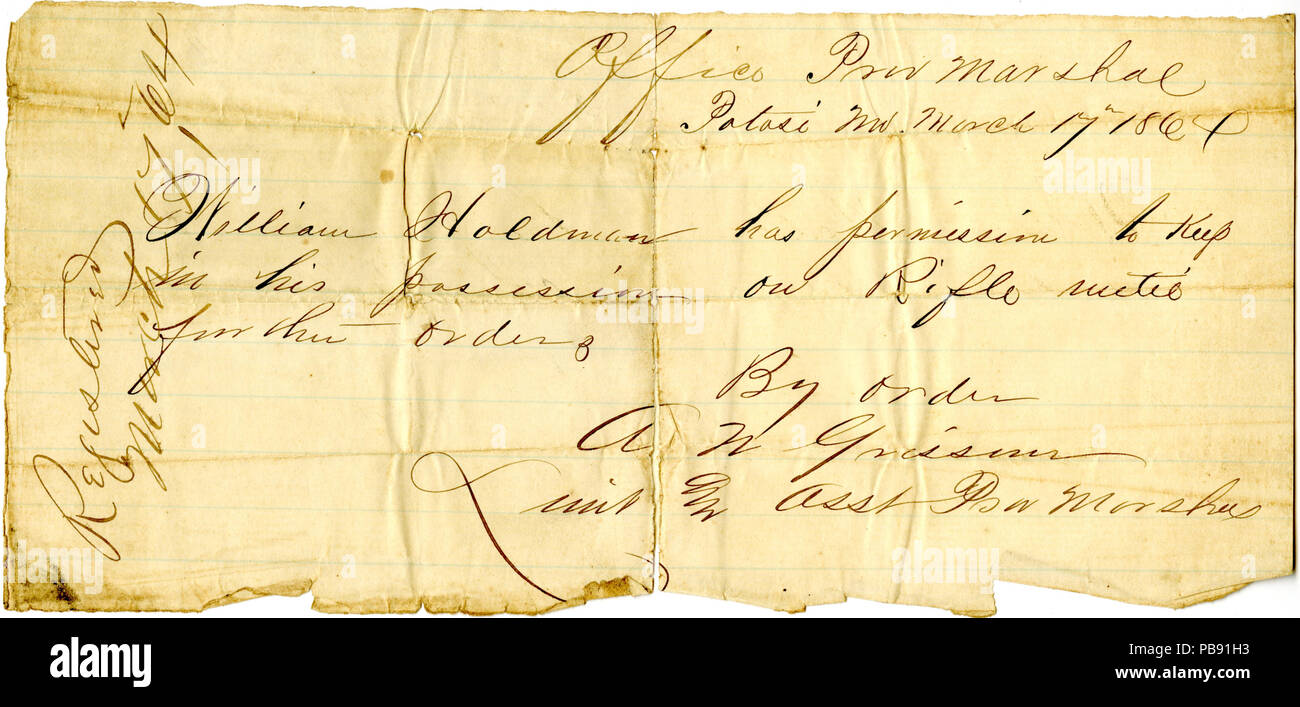 Office Prov Marshal
Potosi Mo. March 17th 1864
William Holdman has permission to Keep
in his possession on Rifle until
further orders
By order
A W Grissom
Lieut & Asst Pro Marshal
Registered
March 17/64
alamy
alamy
Image ID: PB91H3
www.alamy.com